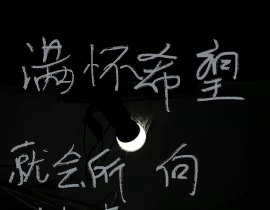 满怀希望
就会所 向